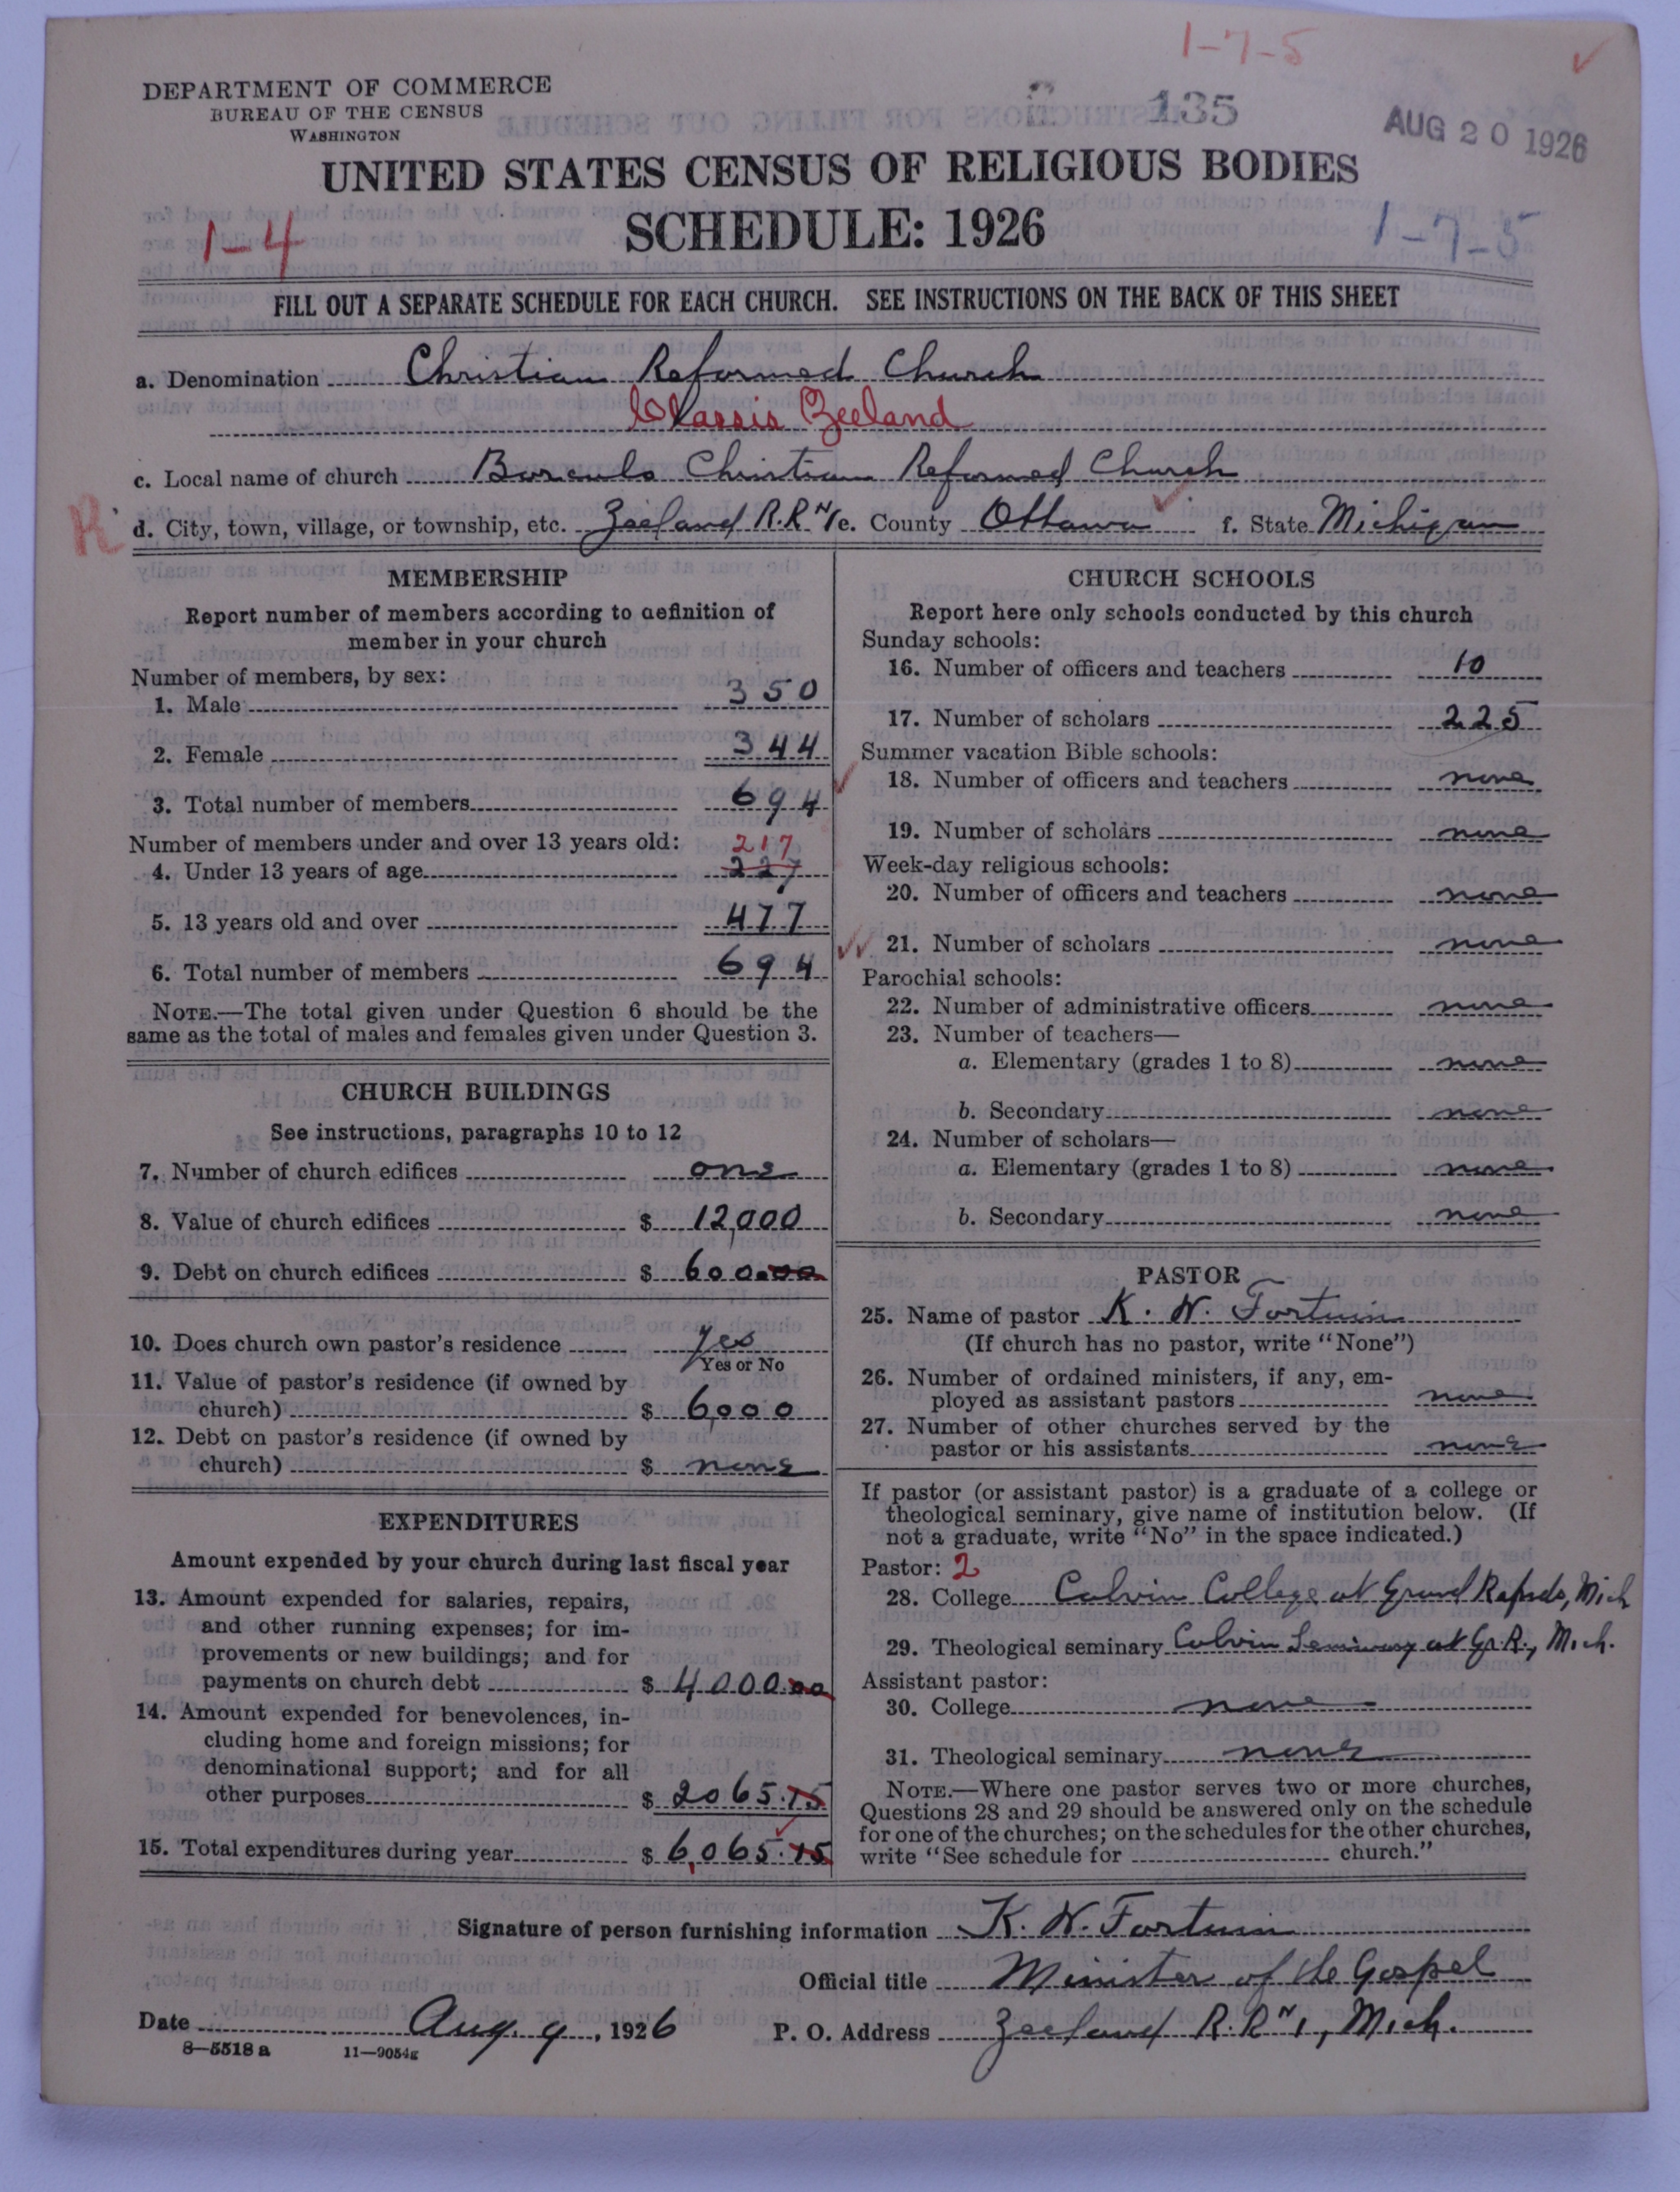 1-7-5
DEPARTMENT OF COMMERCE
BUREAU OF THE CENSUS
WASHINGTON
135
AUG 20 1926
UNITED STATES CENSUS OF RELIGIOUS BODIES
SCHEDULE: 1926
1-4
1-7-5
FILL OUT A SEPARATE SCHEDULE FOR EACH CHURCH. SEE INSTRUCTIONS ON THE BACK OF THIS SHEET
a. Denomination Christian Reformed Church
Classis Zeeland
c. Local name of church Borculo Christian Reformed Church
R d. City, town, village, or township, etc. Zeeland R.R N1 e. County Ottawa f. State Michigan
MEMBERSHIP
Report number of members according to definition of
member in your church
Number of members, by sex:
1. Male 350
2. Female 344
3. Total number of members 694
Number of members under and over 13 years old: 217
4. Under 13 years of age 227
5. 13 years old and over 477
6. Total number of members 694
NOTE.—The total given under Question 6 should be the
same as the total of males and females given under Question 3.
CHURCH BUILDINGS
See instructions, paragraphs 10 to 12
7. Number of church edifices one
8. Value of church edifices $ 12,000
9. Debt on church edifices $ 600.00
10. Does church own pastor's residence yes
Yes or No
11. Value of pastor's residence (if owned by
church) $ 6000
12. Debt on pastor's residence (if owned by
church) $ none
EXPENDITURES
Amount expended by your church during last fiscal year
13. Amount expended for salaries, repairs,
and other running expenses; for im-
provements or new buildings; and for
payments on church debt $ 4000.00
14. Amount expended for benevolences, in-
cluding home and foreign missions; for
denominational support; and for all
other purposes $ 2065.15
15. Total expenditures during year $ 6,065.15
CHURCH SCHOOLS
Report here only schools conducted by this church
Sunday schools:
16. Number of officers and teachers 10
17. Number of scholars 225
Summer vacation Bible schools:
18. Number of officers and teachers none
19. Number of scholars none
Week-day religious schools:
20. Number of officers and teachers none
21. Number of scholars none
Parochial schools:
22. Number of administrative officers none
23. Number of teachers—
a. Elementary (grades 1 to 8) none
b. Secondary none
24. Number of scholars—
a. Elementary (grades 1 to 8) none
b. Secondary none
PASTOR
25. Name of pastor K. W. Fortuin
(If church has no pastor, write "None")
26. Number of ordained ministers, if any, em-
ployed as assistant pastors none
27. Number of other churches served by the
pastor or his assistants none
If pastor (or assistant pastor) is a graduate of a college or
theological seminary, give name of institution below. (If
not a graduate, write "No" in the space indicated.)
Pastor: 2
28. College Calvin College at Grand Rapids, Mich
29. Theological seminary Calvin Seminary at Gr. R., Mich.
Assistant pastor:
30. College none
31. Theological seminary none
NOTE.—Where one pastor serves two or more churches,
Questions 28 and 29 should be answered only on the schedule
for one of the churches; on the schedules for the other churches,
write "See schedule for church."
Signature of person furnishing information K. W. Fortuin
Official title Minister of the Gospel
Date Aug. 9, 1926 P. O. Address Zeeland R.R N 1, Mich.
8—5518 a 11—9054g